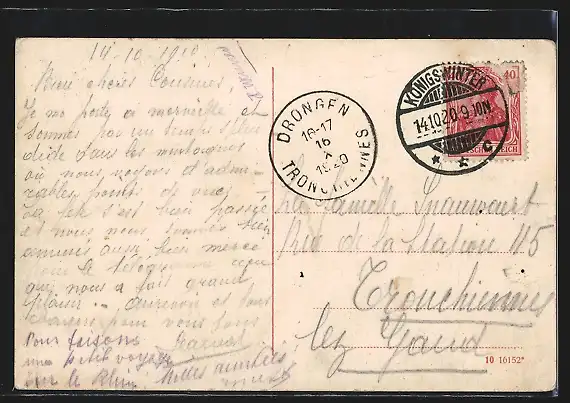 14-10-1920
Bien chères Cousines,
Je me porte a merveille et
sommes par un temps
dans les montagnes
où nous voyons d'admi-
rables points de vues
s'est bien passée
et nous nous sommes bien
amusés aussi, bien merci
pour le télégramme
qui nous a fait grand
plaisir - aurevoir et bons
baisers pour vous tous
Nous faisons
un petit voyage
sur le Rhin. Milles amitiés
DRONGEN
16-17
16
X
1920
TRONCHIENNES
KÖNIGSWINTER
14.10.20.9-10N.
* * c
40
La famille Snauwaert
Rue de la Station 45
Tronchiennes
lez Gand
10 16152*